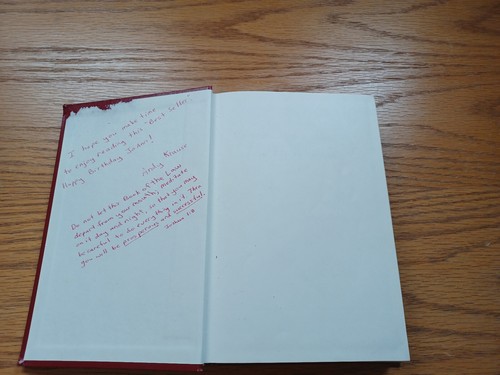 I hope you make time
to enjoy reading this "Best Seller"
Happy Birthday
Andy
Do not let this Book of the Law
depart from your mouth; meditate
on it day and night, so that you may
be careful to do everything in it. Then
you will be prosperous and successful.
Joshua 1:8